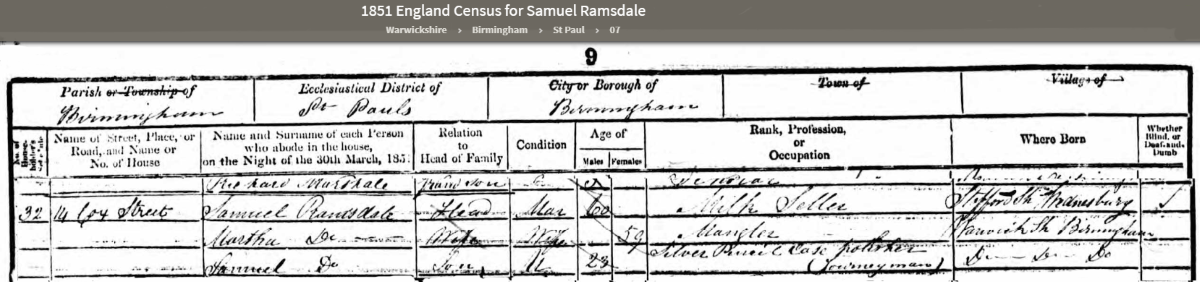 1851 England Census for Samuel Ramsdale
Warwickshire > Birmingham > St Paul > 07
9
Parish or Township of
Ecclesiastical District of
City or Borough of
Town of
Village of
Birmingham
St Pauls
Birmingham
Name of Street, Place, or Road, and Name or No. of House
Name and Surname of each Person who abode in the house, on the Night of the 30th March, 1851
Relation to Head of Family
Condition
Age of
Males Females
Rank, Profession, or Occupation
Where Born
Whether Blind, or Deaf-and-Dumb
Richard Marshale Grandson
32 14 Cox Street Samuel Ramsdale Head Mar 60 Milk Seller Staffordsh Wednesbury
Martha Do Wife 59 Mangler Warwicksh Birmingham
Samuel Do Son U 23 Silver Pencil Case polisher (Journeyman) Do Do